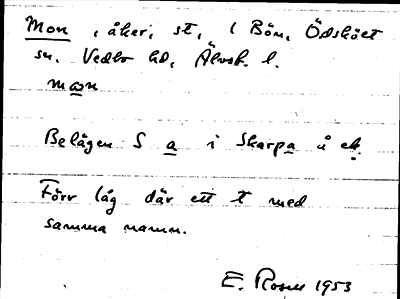 Mon, åker, st, i Bön, Ödskölt
sn. Vedbo hd, Älvsb. l.
man
Belägen S a i Skarpa å ek.
Förr låg där ett t med
samma namn.
E. Rosen 1953